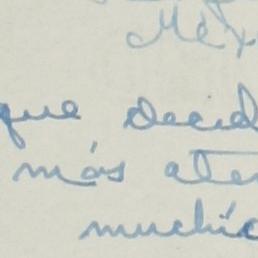 Méx
que decid
más aten
muchís